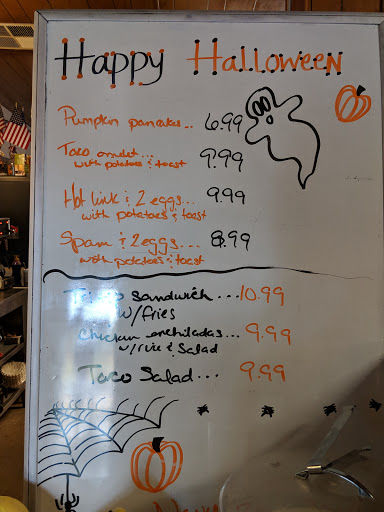 Happy Halloween
Pumpkin pancakes... 6.99
Taco omulet... 9.99
with potatoes & toast
Hot link & 2 eggs... 9.99
with potatoes & toast
Spam & 2 eggs... 8.99
with potatoes & toast
sandwich... 10.99
w/ fries
Chicken enchiladas... 9.99
w/rice & Salad
Taco Salad... 9.99